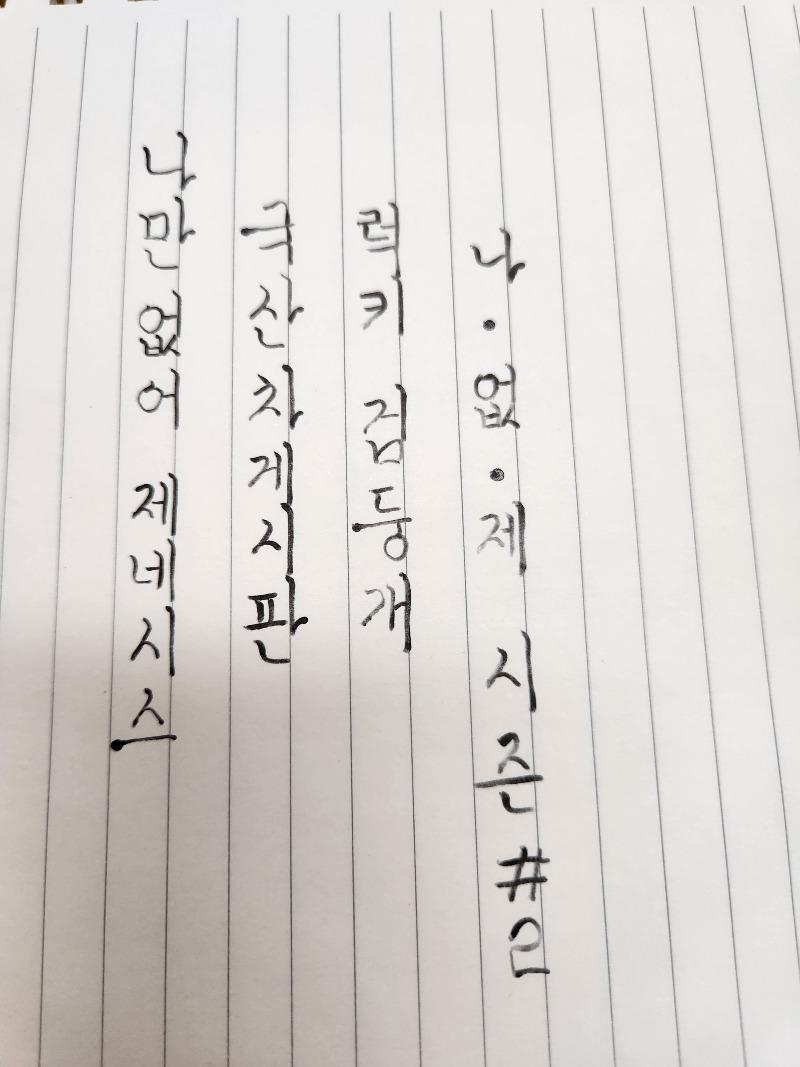 나만없어 제네시스
국산차게시판
럭키 검둥개
나·없·제 시즌#2